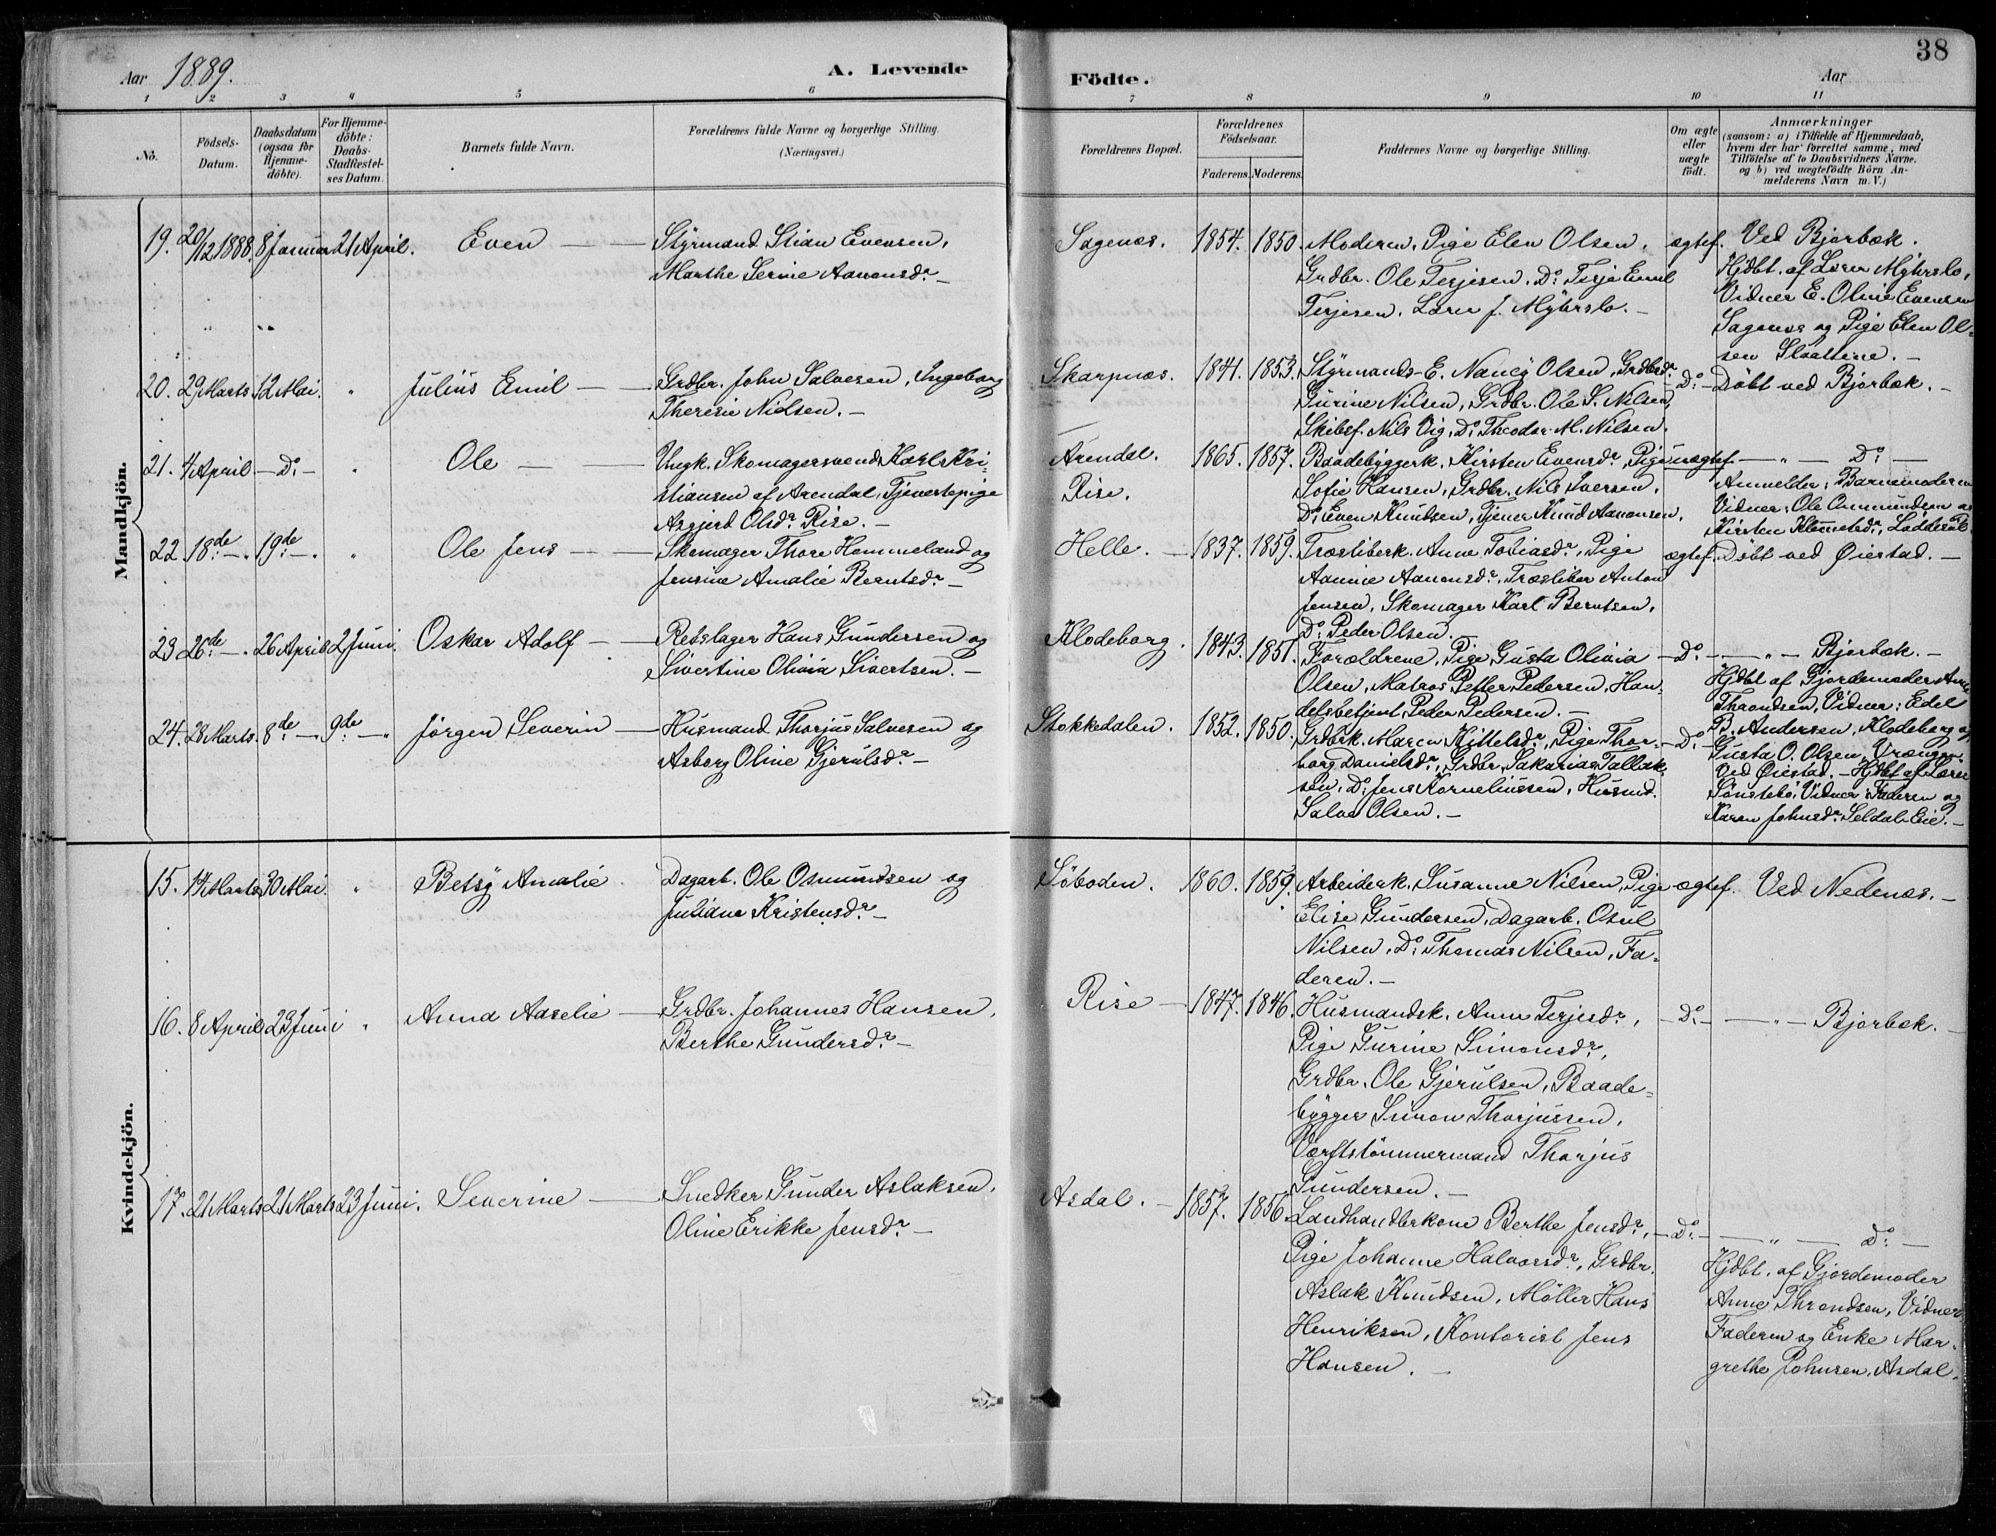 38
Aar 1889.
A. Levende
Födte.
Aar
1 2 3 4 5 6 7 8 9 10 11
No.
Födsels-
Datum.
Daabsdatum
(ogsaa for
Hjemme-
döbte).
For Hjemme-
döbte:
Daabs-
Stadfæstel-
ses Datum.
Barnets fulde Navn.
Forældrenes fulde Navne og borgerlige Stilling.
(Næringsvei.)
Forældrenes Bopæl.
Forældrenes
Födselsaar.
Faderens. Moderens.
Faddernes Navne og borgerlige Stilling.
Om ægte
eller
uægte
födt.
Anmærkninger
(saasom: a) i Tilfælde af Hjemmedaab,
hvem der har forrettet samme, med
Tilföielse af to Daabsvidners Navne.
og b) ved uægtefödte Börn An-
melderens Navn m. V.)
Mandkjön.
19. 20/12 1888. 8 Januar 21 April. Even —
Styrmand Stian Evensen,
Marthe Serine Aanonsdr. —
Sagenæs. 1854. 1850.
Moderen, Pige Elen Olsen,
Grdbr. Ole Terjesen, Do: Terje Emil
Terjesen, Lærer J. Myhrslo. —
ægtef.
Ved Bjorbæk.
Hjdbt. af Lærer Myhrslo,
Vidner E. Oline Evensen
Sagenæs og Pige Elen Ol-
sen Slaattene. —
20. 29 Marts 12 Mai. " Julius Emil —
Grdbr. John Salvesen, Ingeborg
Theresie Nielsen. —
Skarpnæs. 1841. 1853.
Styrmands E. Nancy Olsen, Grdbrdr.
Gurine Nilsen, Grdbr. Ole S. Nilsen,
Skibsf. Nils Vig, Do: Theodor M. Nilsen.
— Do: —
Döbt ved Bjorbæk. —
21. 4 April — Do: — " Ole —
Ungk. Skomagersvend Karl Kri-
stiansen af Arendal, Tjenestepige
Asgjerd Olsdr. Rise. —
Arendal.
Rise.
1865. 1857.
Baadebyggerk. Kirsten Evensdr., Pige
Sofie Hansen, Grdbr. Nils Iversen,
Do: Even Knudsen, Tjener Knud Aanonsen.
uægtef.
— " — Do: —
Anmelder: Barnemoderen
Vidner: Ole Ommundsen og
Kirsten Klemetsdr.,
22. 18de — 19de — " Ole Jens —
Skomager Thore Hommeland og
Jensine Amalie Berntsdr. —
Helle. — 1837. 1859.
Træsliberk. Anne Tobiasdr., Pige
Aanine Aanonsdr., Træsliber Anton
Jensen, Skomager Karl Berntsen,
Do: Peder Olsen.
ægtef.
Döbt ved Øiestad. —
23 26de — 26 April 2 Juni. Oskar Adolf —
Rebslager Hans Gundersen og
Sivertine Olivia Sivertsen. —
Klodeborg. 1843. 1851.
Forældrene, Pige Gusta Olivia
Olsen, Matros Petter Pedersen, Han-
delsbetjent Peder Pedersen. —
— Do: —
— " — Bjorbæk. —
Hjdbt af Gjordemoder Anne
Throndsen, Vidner: Edel
B. Andersen, Klodeborg og
Gusta O. Olsen, Vrængen.
24. 28 Marts 8de — 9de — Jørgen Severin —
Husmand Thorjus Salvesen og
Asborg Oline Gjerulsdr. —
Stokkedalen. 1852. 1850.
Grdbrk. Maren Kittelsdr., Pige Thor-
borg Danielsdr., Grdbr. Sakarias Tallak-
sen, Do: Jens Kornelius­sen, Husmd.
Salve Olsen. —
— Do: —
Ved Øiestad. — Hjdbt af Lærer
Sønstebö, Vidner: Faderen og
Karen Johnsdr. Seldal-Eie. —
Kvindekjön.
15. 14 Marts 30 Mai. " Betsy Amalie
Dagarb. Ole Osmundsen og
Juliane Kristensdr. —
Söboden. 1860. 1859.
Arbeiderk. Susanne Nilsen, Pige
Elise Gundersen, Dagarb. Osul
Nilsen, Do: Thomas Nilsen, Fa-
deren. —
ægtef.
Ved Nedenæs. —
16. 8 April 23 Juni " Anna Aaselie —
Grdbr. Johannes Hansen,
Berthe Gundersdr. —
Rise — 1847. 1846.
Husmandsk. Anne Terjesdr.,
Pige Gurine Simonsdr.,
Grdbr. Ole Gjerulsen, Baade-
bygger Simon Thorjussen,
Værftstömmermand Thorjus
Gundersen. —
— Do: —
— " — Bjorbæk. —
17. 21 Marts 21 Marts 23 Juni. Severine —
Snedker Gunder Aslaksen,
Oline Erikke Jensdr. —
Asdal. — 1857. 1856.
Landhandlerkone Berthe Jensdr.,
Pige Johanne Halvorsdr., Grdbr.
Aslak Knudsen, Møller Hans
Henriksen, Kontorist Jens
Hansen. —
— Do: —
— " — Do: —
Hjdbt. af Gjordemoder
Anne Throndsen, Vidner
Faderen og Enke Mar-
grethe Johnsen, Asdal.